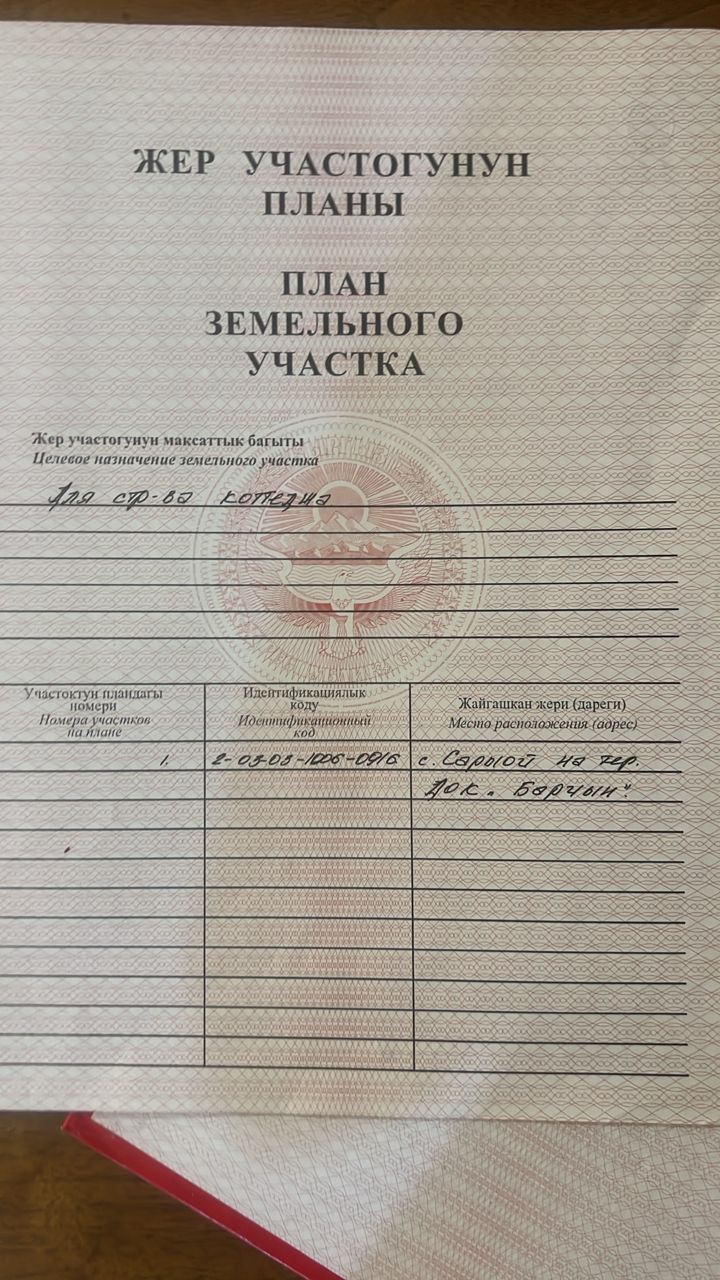 ЖЕР УЧАСТОГУНУН
ПЛАНЫ
ПЛАН
ЗЕМЕЛЬНОГО
УЧАСТКА
Жер участогунун максаттык багыты
Целевое назначение земельного участка
Для стр-ва котеджа
Участоктун пландагы
номери
Номера участков
на плане
Идентификациялык
коду
Идентификационный
код
Жайгашкан жери (дареги)
Место расположения (адрес)
1. 2-03-03-1006-0916 с. Сарыой на тер.
Док. "Барчын".